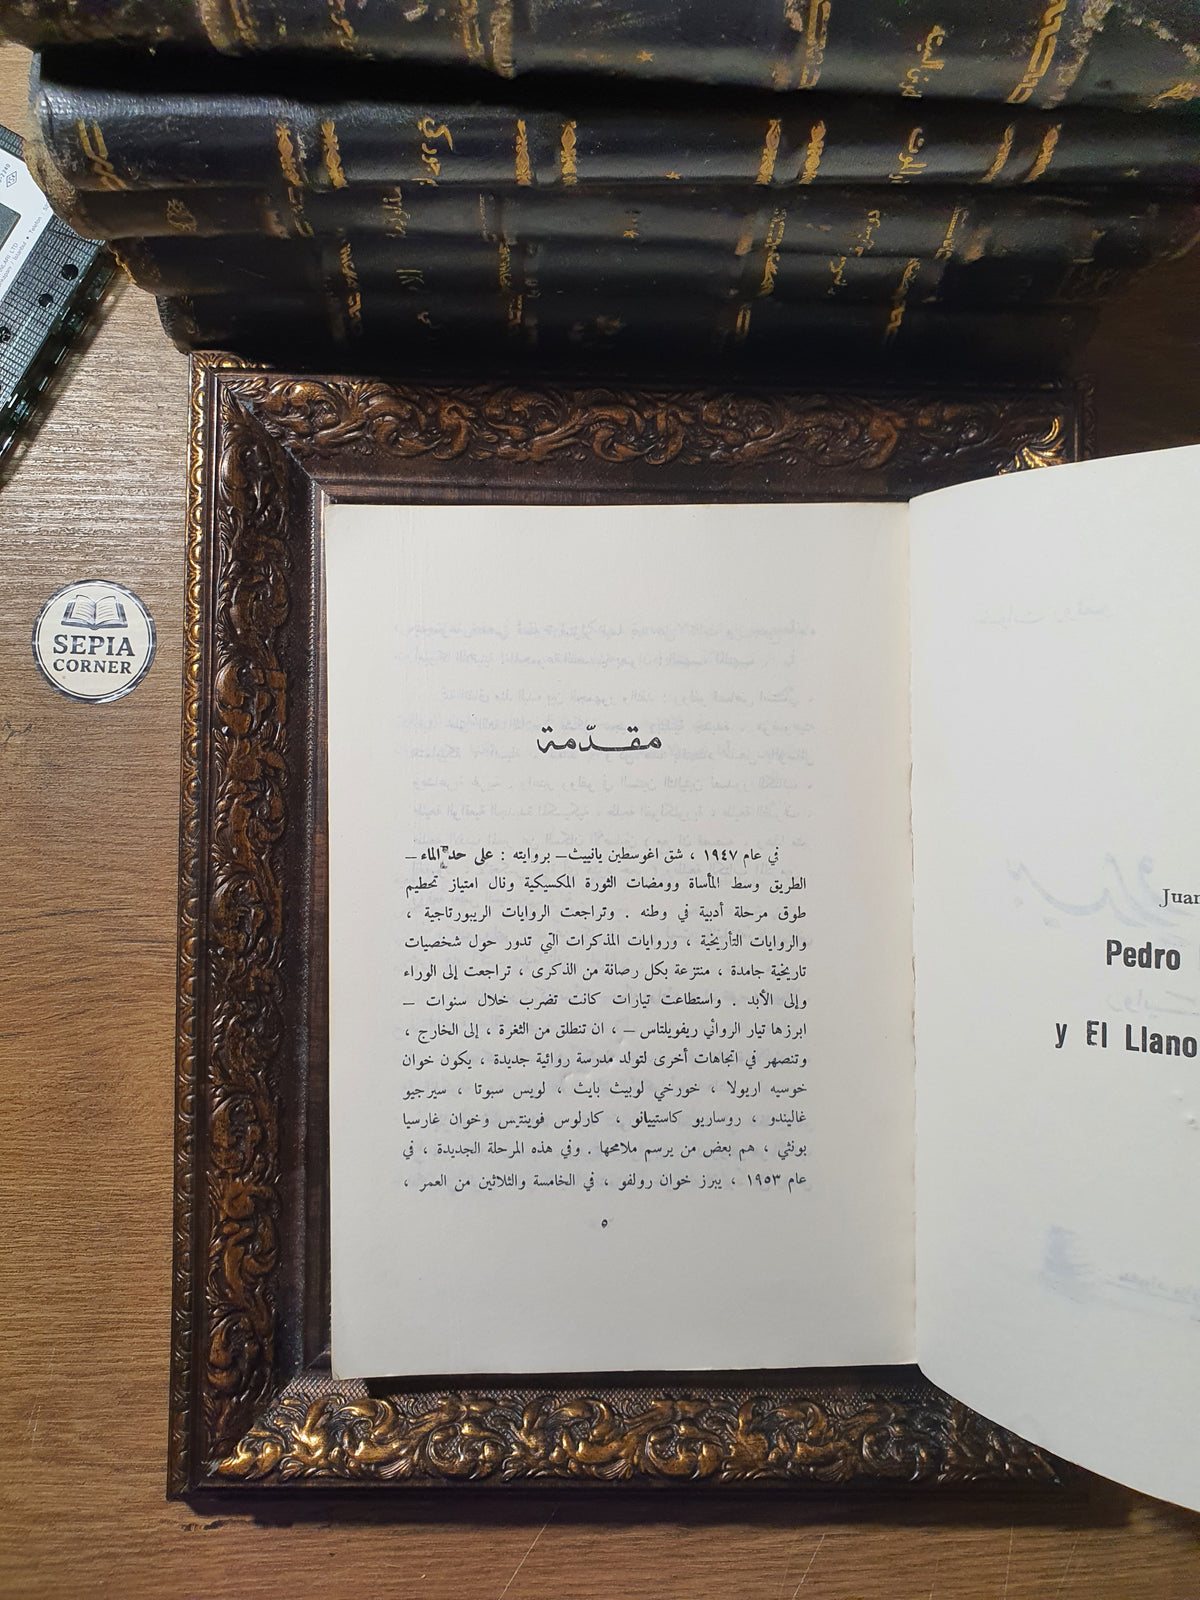 SEPIA
CORNER
مقدّمة
في عام ١٩٤٧ ، شق اغوسطين يانييث – بروايته : على حد الماء –
الطريق وسط المأساة وومضات الثورة المكسيكية ونال امتياز تحطيم
طوق مرحلة أدبية في وطنه . وتراجعت الروايات الريبورتاجية ،
والروايات التأريخية ، وروايات المذكرات التي تدور حول شخصيات
تاريخية جامدة ، منتزعة بكل رصانة من الذكرى ، تراجعت إلى الوراء
وإلى الأبد . واستطاعت تيارات كانت تضرب خلال سنوات –
ابرزها تيار الروائي ريفويلتاس – ، ان تنطلق من الثغرة ، إلى الخارج ،
وتنصهر في اتجاهات أخرى لتولد مدرسة روائية جديدة ، يكون خوان
خوسيه اريولا ، خورخي لوبيث بايث ، لويس سبوتا ، سيرجيو
غاليندو ، روساريو كاستييانو ، كارلوس فوينتيس وخوان غارسيا
بونثي ، هم بعض من يرسم ملامحها . وفي هذه المرحلة الجديدة ، في
عام ١٩٥٣ ، يبرز خوان رولفو ، في الخامسة والثلاثين من العمر ،
٥
Juan
Pedro
y El Llano